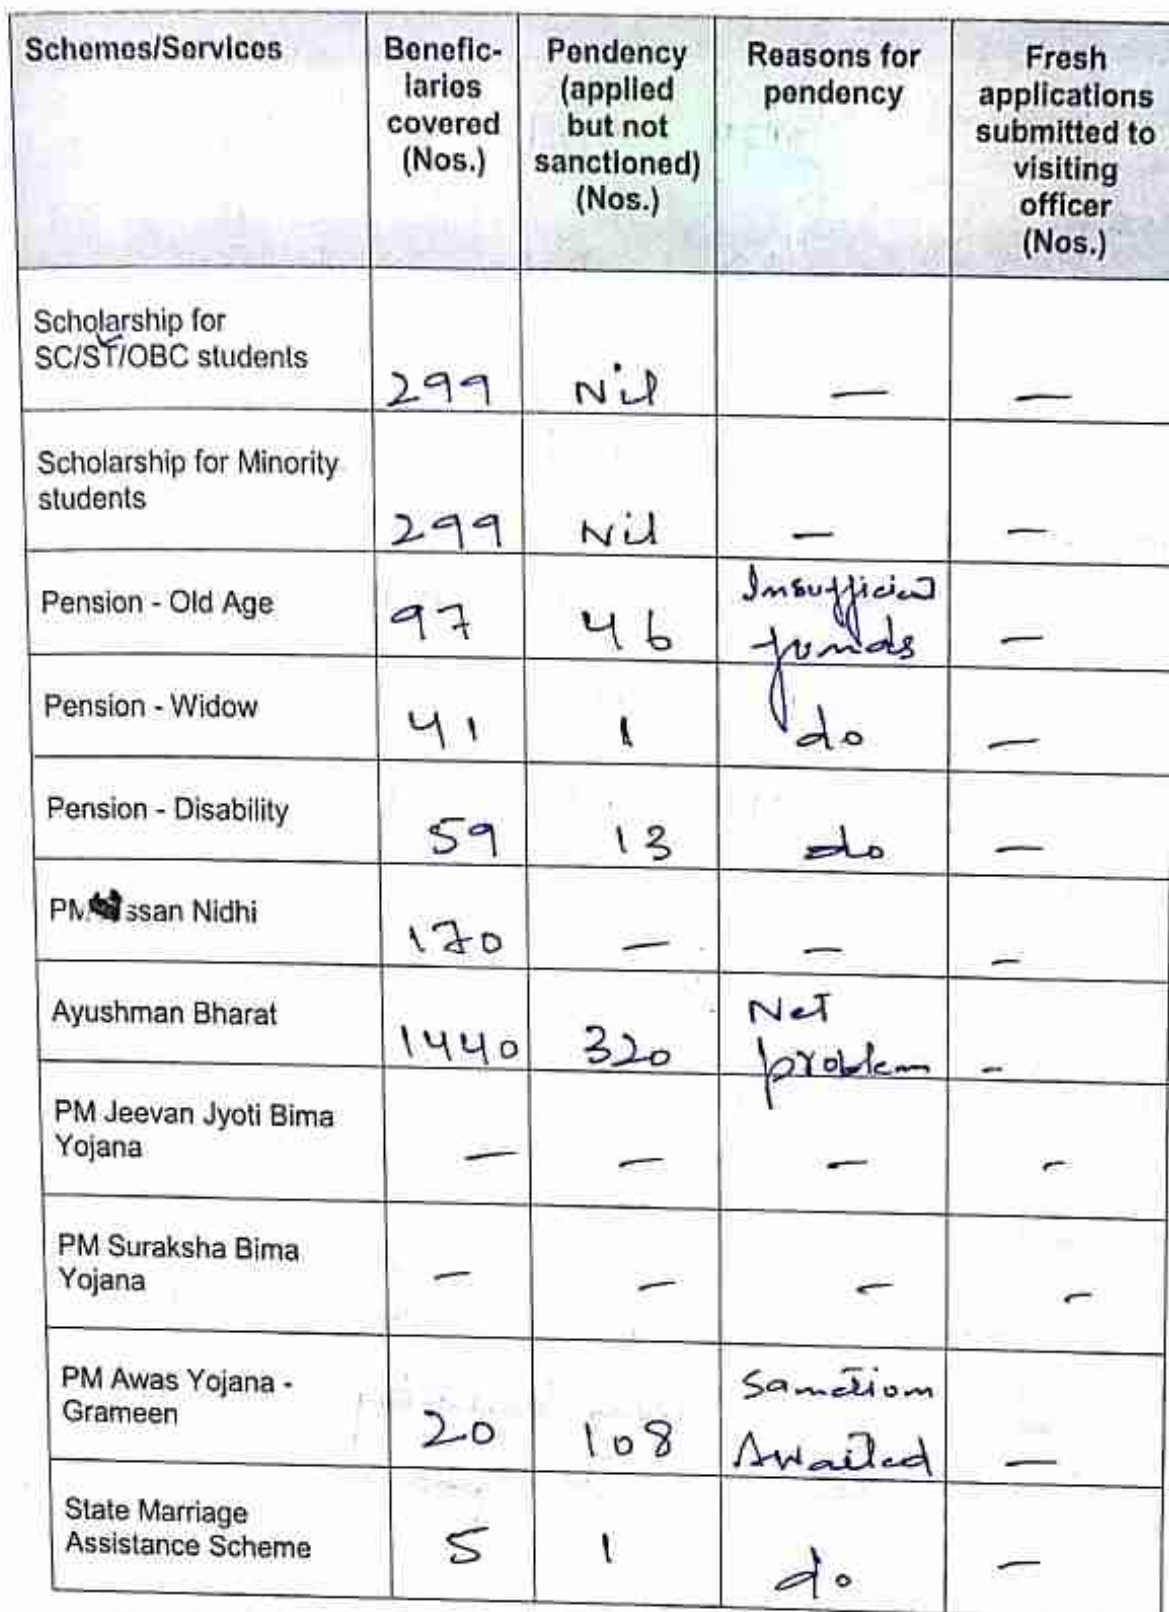 Schemes/Services | Benefic-iaries covered (Nos.) | Pendency (applied but not sanctioned) (Nos.) | Reasons for pendency | Fresh applications submitted to visiting officer (Nos.)
Scholarship for SC/ST/OBC students | 299 | Nil | — | —
Scholarship for Minority students | 299 | Nil | — | —
Pension - Old Age | 97 | 46 | Insufficient funds | —
Pension - Widow | 41 | 1 | do | —
Pension - Disability | 59 | 13 | do | —
PM ssan Nidhi | 170 | — | — | —
Ayushman Bharat | 1440 | 320 | Net problem | —
PM Jeevan Jyoti Bima Yojana | — | — | — | —
PM Suraksha Bima Yojana | — | — | — | —
PM Awas Yojana - Grameen | 20 | 108 | Sanction Awaited | —
State Marriage Assistance Scheme | 5 | 1 | do | —